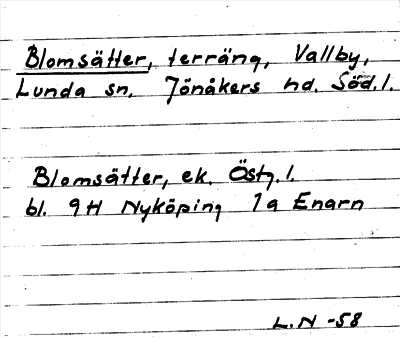 Blomsätter, terräng, Vallby,
Lunda sn. Jönåkers hd. Söd.l.
Blomsätter, ek. Östg.l.
bl. 9H Nyköping 1a Enarn
L.N -58